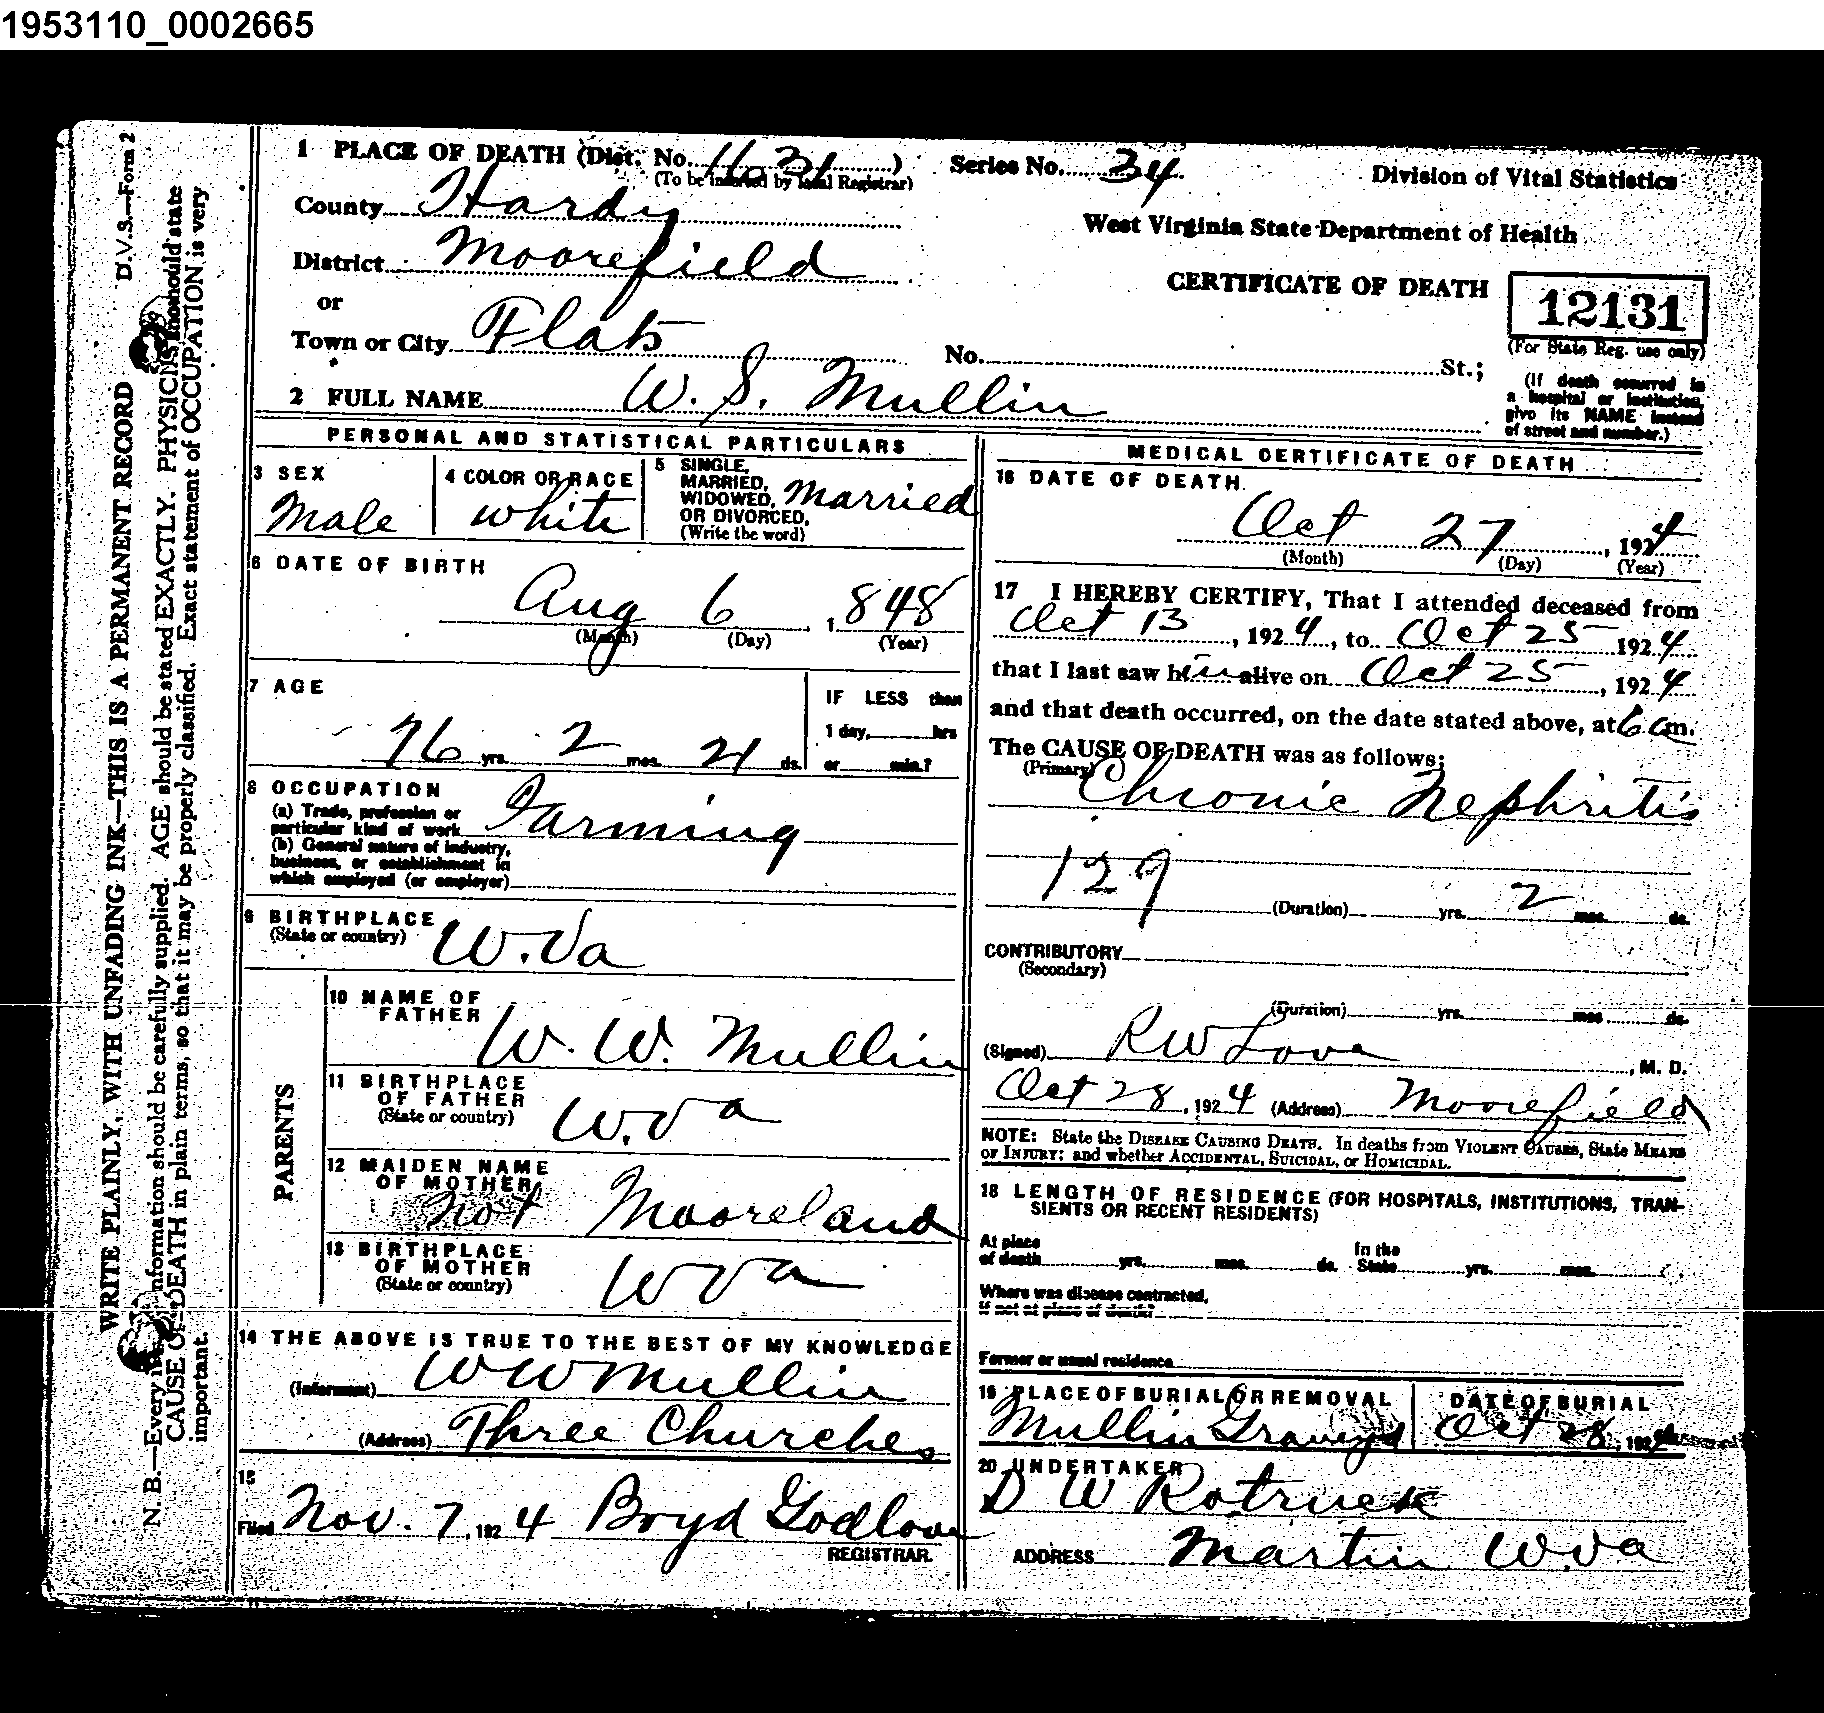 1953110_0002665
D.V.S.—Form 2
WRITE PLAINLY, WITH UNFADING INK—THIS IS A PERMANENT RECORD
N. B.—Every information should be carefully supplied. AGE should be stated EXACTLY. PHYSICIANS should state
CAUSE OF DEATH in plain terms, so that it may be properly classified. Exact statement of OCCUPATION is very
important.
1 PLACE OF DEATH (Dist. No. 1631) Series No. 34 Division of Vital Statistics
(To be inserted by local Registrar)
County Hardy
West Virginia State Department of Health
District Moorefield
CERTIFICATE OF DEATH 12131
or
Town or City Flats No. St.;
(For State Reg. use only)
(If death occurred in
a hospital or institution,
give its NAME instead
of street and number.)
2 FULL NAME W. S. Mullin
PERSONAL AND STATISTICAL PARTICULARS
3 SEX
Male
4 COLOR OR RACE
White
5 SINGLE,
MARRIED,
WIDOWED,
OR DIVORCED,
(Write the word)
Married
6 DATE OF BIRTH
Aug 6, 1848
(Month) (Day) (Year)
7 AGE
76 yrs. 2 mos. 21 ds.
IF LESS than
1 day, hrs
or min.?
8 OCCUPATION
(a) Trade, profession or
particular kind of work Farming
(b) General nature of industry,
business, or establishment in
which employed (or employer)
9 BIRTHPLACE
(State or country) W.Va
PARENTS
10 NAME OF
FATHER
W. W. Mullin
11 BIRTHPLACE
OF FATHER
(State or country) W.Va
12 MAIDEN NAME
OF MOTHER
Not Mooreland
13 BIRTHPLACE
OF MOTHER
(State or country) W Va
14 THE ABOVE IS TRUE TO THE BEST OF MY KNOWLEDGE
(Informant) W W Mullin
(Address) Three Churches
15
Filed Nov. 7, 1924 Boyd Godlove
REGISTRAR.
MEDICAL CERTIFICATE OF DEATH
16 DATE OF DEATH
Oct 27, 1924
(Month) (Day) (Year)
17 I HEREBY CERTIFY, That I attended deceased from
Oct 13, 1924, to Oct 25 1924
that I last saw him alive on Oct 25, 1924
and that death occurred, on the date stated above, at 6 am.
The CAUSE OF DEATH was as follows:
(Primary) Chronic Nephritis
129
(Duration) yrs. 2 mos. ds.
CONTRIBUTORY
(Secondary)
(Duration) yrs. mos. ds.
(Signed) R W Love, M. D.
Oct 28, 1924 (Address) Moorefield
NOTE: State the DISEASE CAUSING DEATH. In deaths from VIOLENT CAUSES, State MEANS
OF INJURY; and whether ACCIDENTAL, SUICIDAL, or HOMICIDAL.
18 LENGTH OF RESIDENCE (FOR HOSPITALS, INSTITUTIONS, TRAN-
SIENTS OR RECENT RESIDENTS)
At place
of death yrs. mos. ds.
In the
State yrs. mos.
Where was disease contracted,
if not at place of death?
Former or usual residence
19 PLACE OF BURIAL OR REMOVAL
Mullin Graveyd
DATE OF BURIAL
Oct 28, 1924
20 UNDERTAKER
D W Rotruck
ADDRESS Martin W.Va